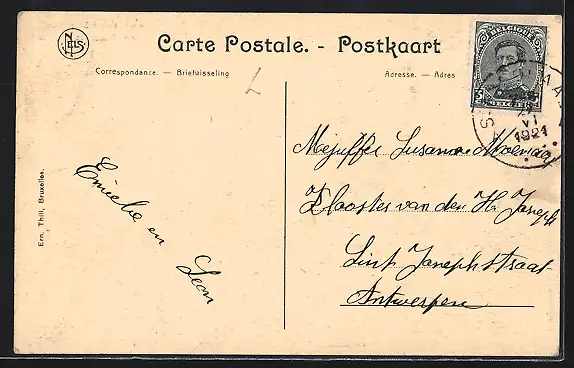 NELS
Carte Postale. - Postkaart
Correspondance. — Briefwisseling
Adresse. — Adres
BELGIQUE
BELGIE
VI
1921
Ern. Thill, Bruxelles.
Mejuffer Susanna
Klooster van den H. Joseph
Sint Josephstraat
Antwerpen
en Leon